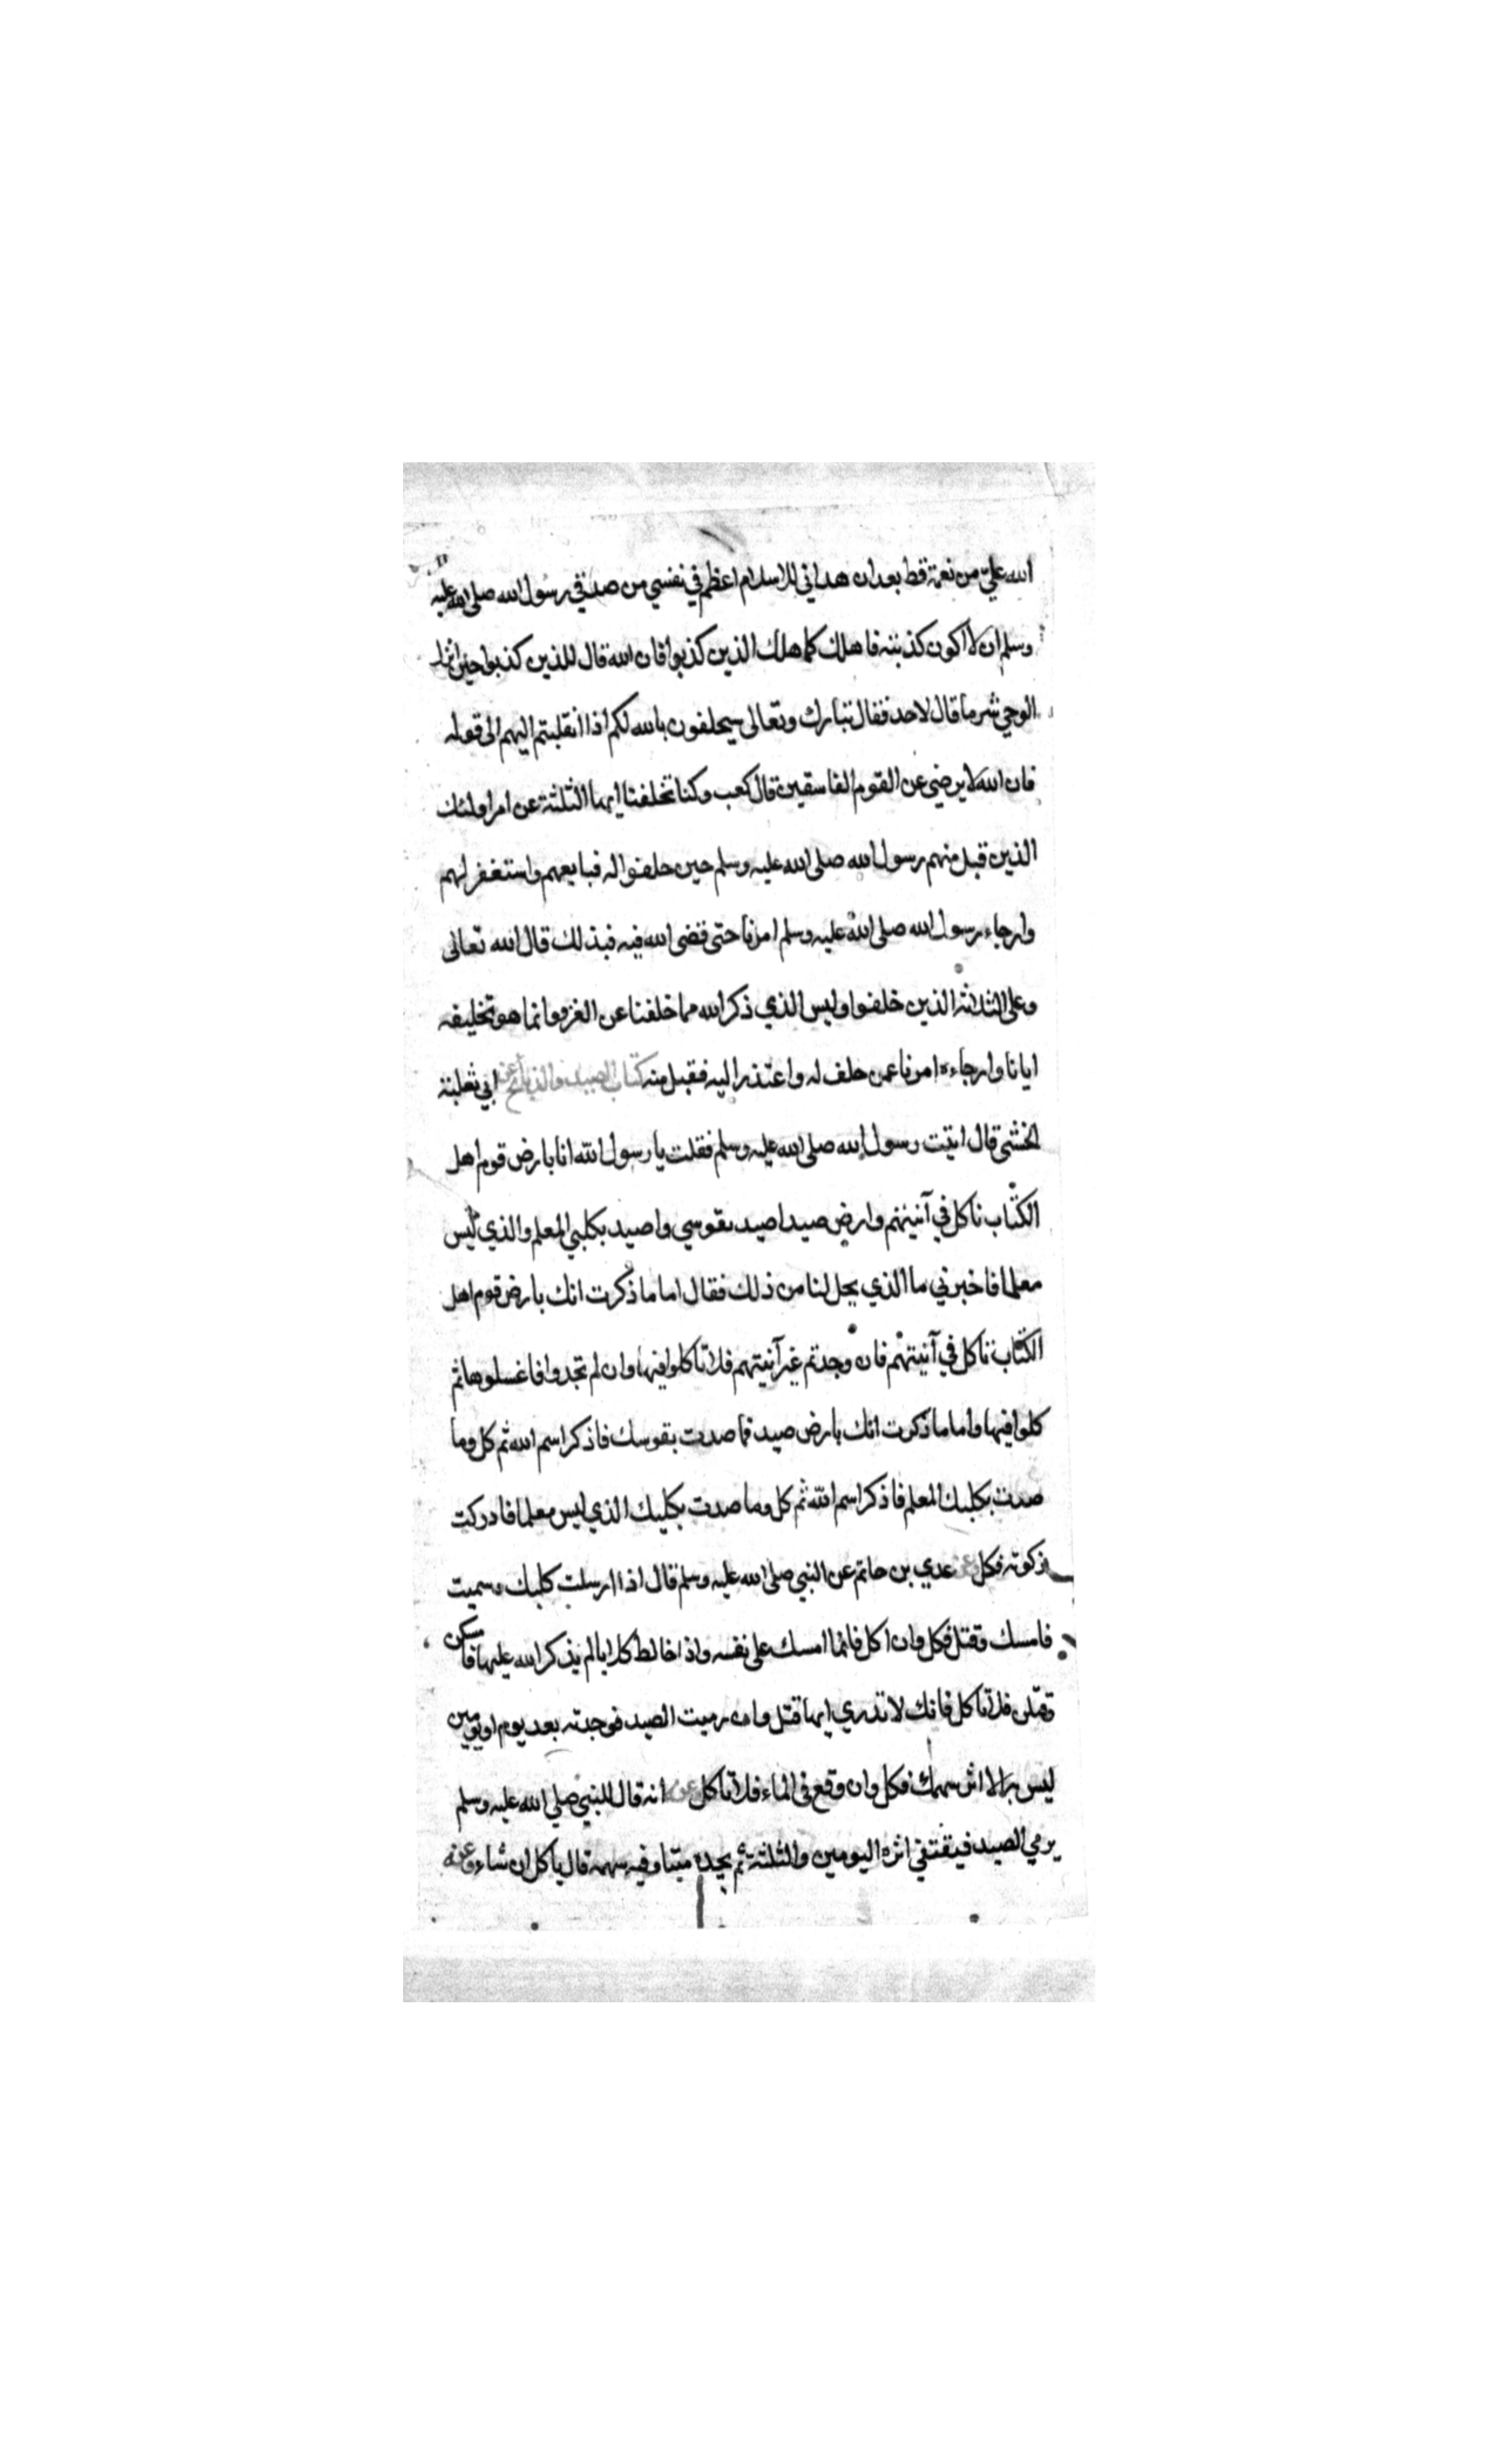 الله علي من نعمة قط بعد ان هداني للاسلام اعظم في نفسي من صدقي رسول الله صلى الله عليه
وسلم ان لا اكون كذبته فاهلك كما هلك الذين كذبوا فان الله قال للذين كذبوا حين انزل
الوحي شر ما قال لاحد فقال تبارك وتعالى سيحلفون بالله لكم اذا انقلبتم اليهم الى قوله
فان الله لا يرضى عن القوم الفاسقين قال كعب وكنا تخلفنا ايها الثلثة عن امر اولئك
الذين قبل منهم رسول الله صلى الله عليه وسلم حين حلفوا له فبايعهم واستغفر لهم
وارجاء رسول الله صلى الله عليه وسلم امرنا حتى قضى الله فيه فبذلك قال الله تعالى
وعلى الثلاثة الذين خلفوا وليس الذي ذكر الله مما خلفنا عن الغزو وانما هو تخليفه
ايانا وارجاءه امرنا عمن حلف له واعتذر اليه فقبل منه كتاب الصيد والذبائح عن ابي ثعلبة
الخشني قال اتيت رسول الله صلى الله عليه وسلم فقلت يا رسول الله انا بارض قوم اهل
الكتاب ناكل في آنيتهم وارض صيد اصيد بقوسي واصيد بكلبي المعلم والذي ليس
معلما فاخبرني ما الذي يحل لنا من ذلك فقال اما ما ذكرت انك بارض قوم اهل
الكتاب تاكل في آنيتهم فان وجدتم غير آنيتهم فلا تاكلوا فيها وان لم تجدوا فاغسلوها ثم
كلوا فيها واما ما ذكرت انك بارض صيد فما صدت بقوسك فاذكر اسم الله ثم كل وما
صدت بكلبك المعلم فاذكر اسم الله ثم كل وما صدت بكلبك الذي ليس معلما فادركت
ذكوته فكل وعن عدي بن حاتم عن النبي صلى الله عليه وسلم قال اذا ارسلت كلبك وسميت
فامسك وقتل فكل وان اكل فانما امسك على نفسه واذا خالط كلابا لم يذكر الله عليها فامسكن
وقتلن فلا تاكل فانك لا تدري ايها قتل وان رميت الصيد فوجدته بعد يوم او يومين
ليس به الا اثر سهمك فكل وان وقع في الماء فلا تاكل وعنه انه قال للنبي صلى الله عليه وسلم
يرمي الصيد فيقتفي اثره اليومين والثلثة ثم يجده ميتا وفيه سهمه قال ياكل ان شاء وعنه